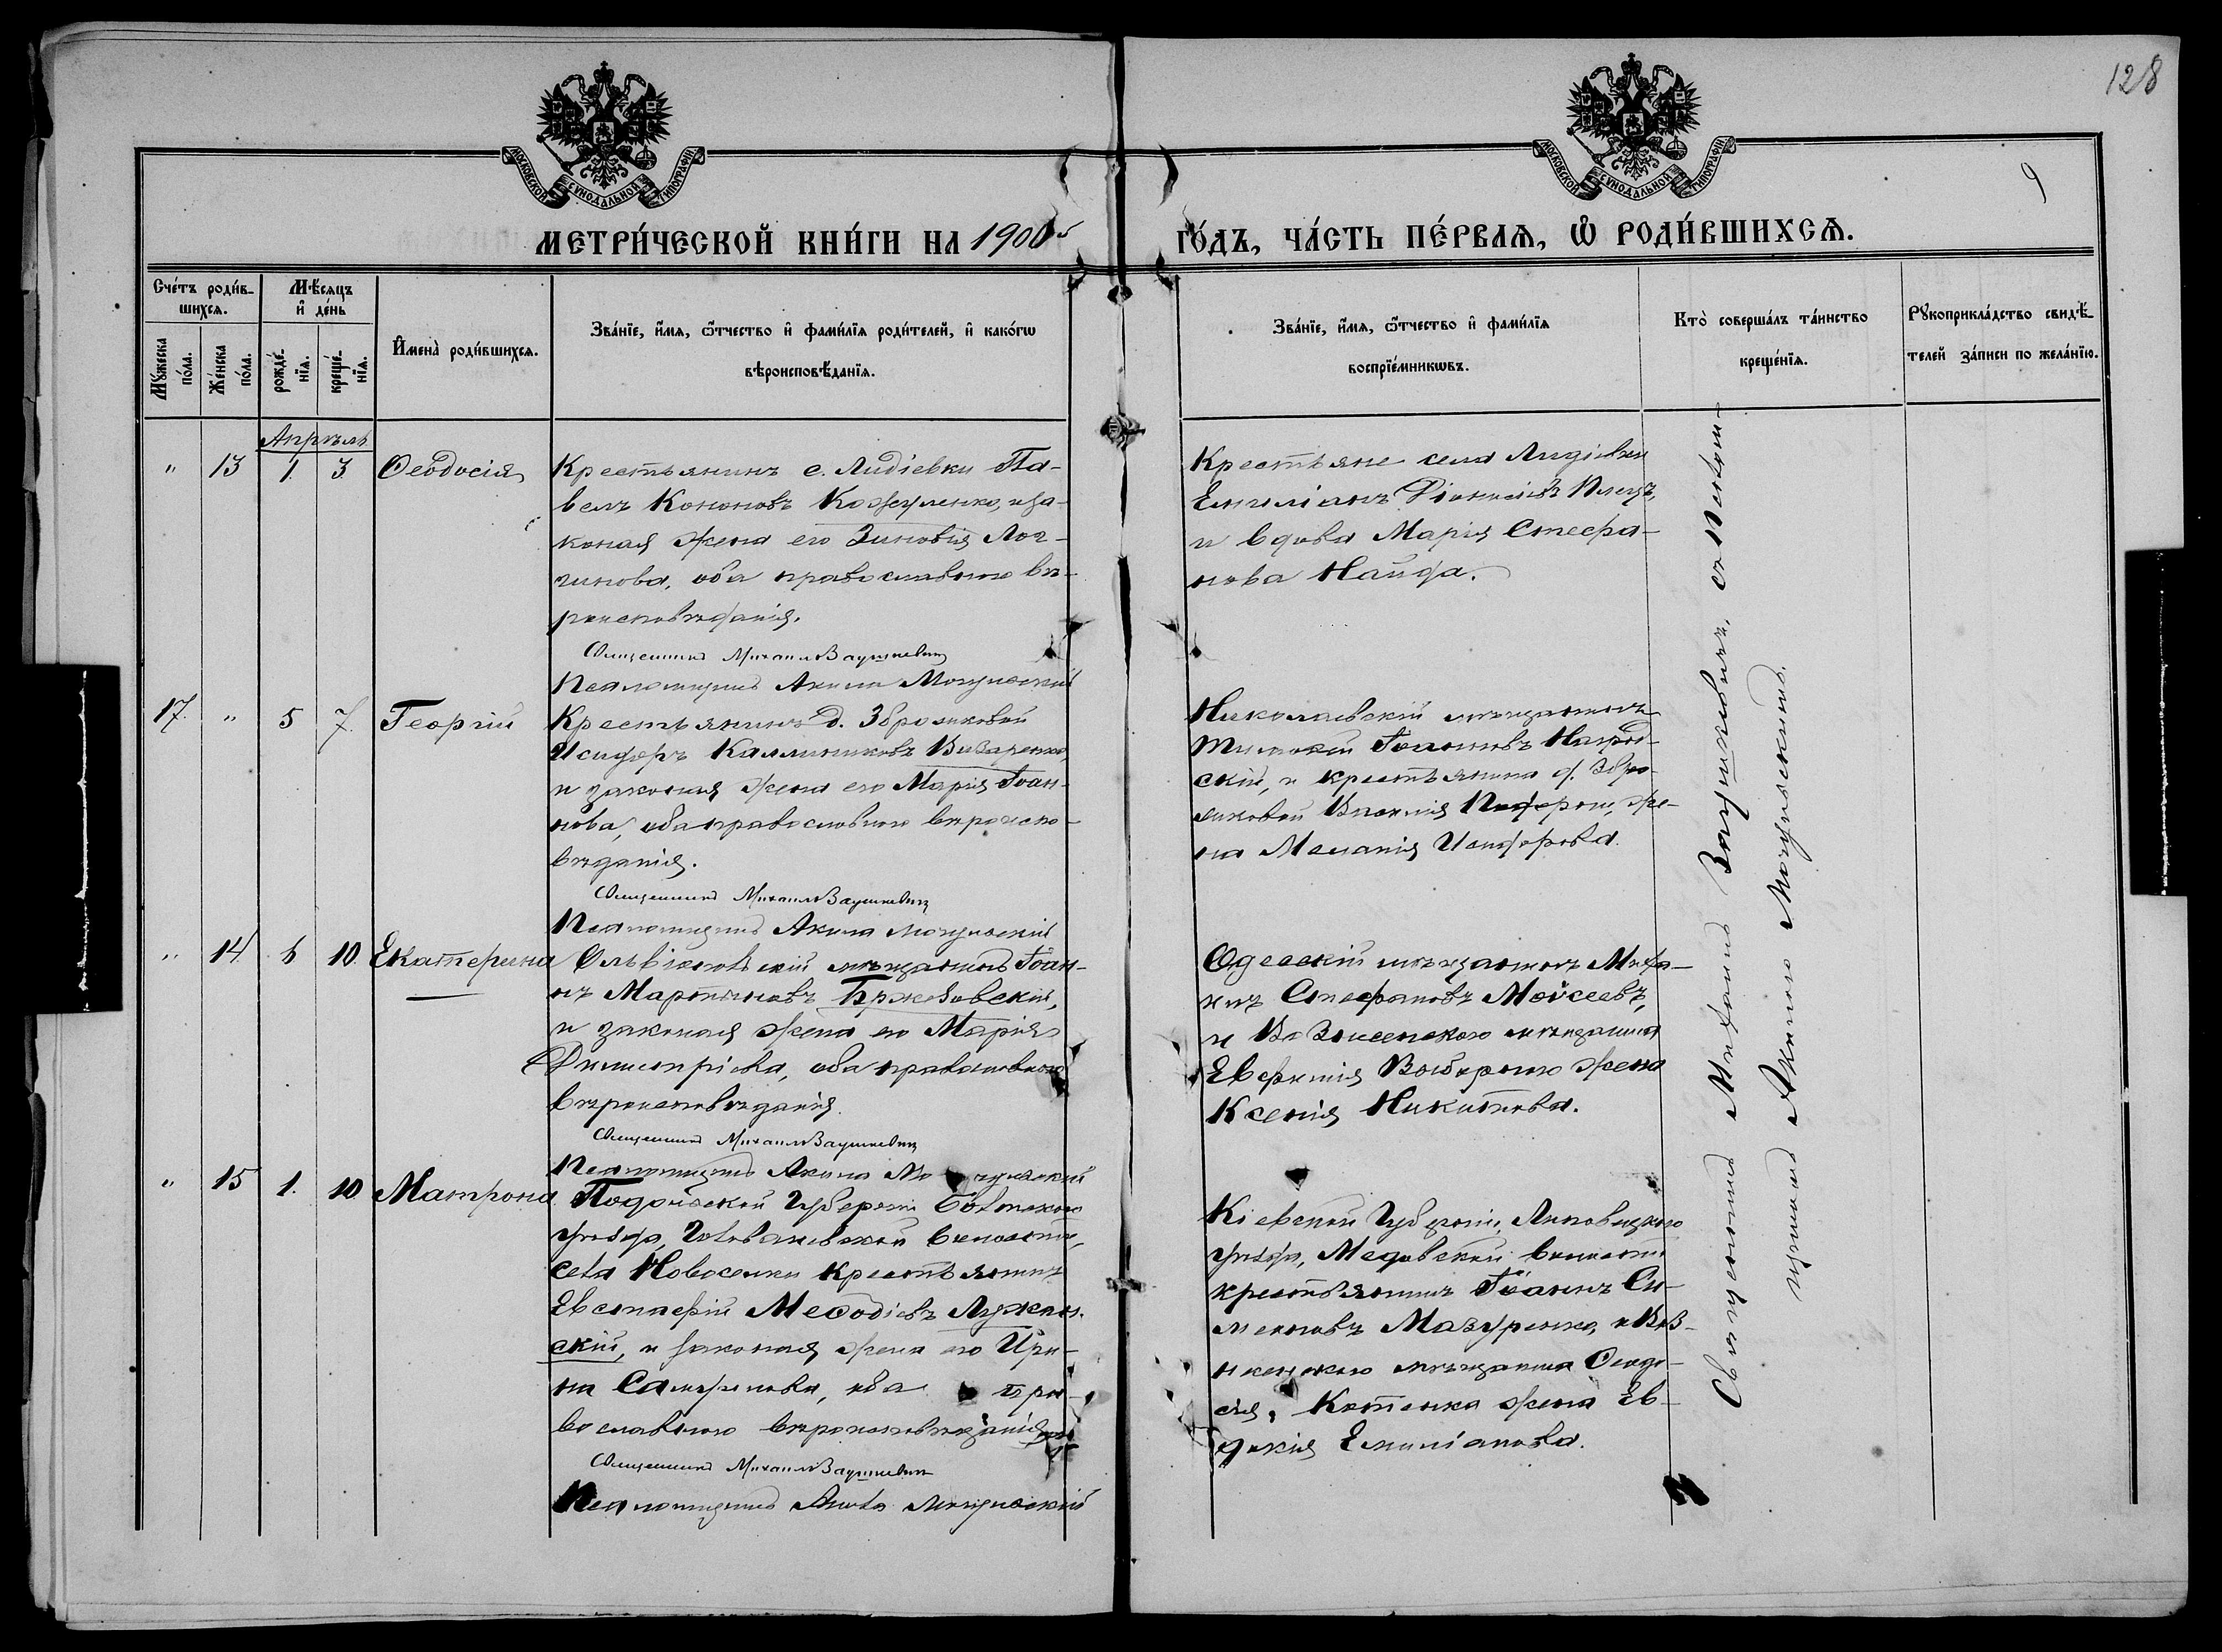 128
9
МОСКОВСКОЙ СѴНОДАЛЬНОЙ ТИПОГРАФІИ
МОСКОВСКОЙ СѴНОДАЛЬНОЙ ТИПОГРАФІИ
МЕТРИ́ЧЕСКОЙ КНИ́ГИ НА 1900й ГО́ДЪ, ЧА́СТЬ ПЕ́РВАѦ, Ѡ҆ РОДИ́ВШИХСѦ.
Сче́тъ роди́в-
шихсѧ.
Мꙋ́жеска по́ла.
Же́нска по́ла.
Мѣ́сѧцъ
и҆ де́нь
рожде́-
нїѧ.
креще́-
нїѧ.
И҆мена̀ роди́вшихсѧ.
Зва́нїе, и҆́мѧ, ѻ҆́тчество и҆ фами́лїѧ роди́телей, и҆ како́гѡ
вѣроисповѣ́данїѧ.
Зва́нїе, и҆́мѧ, ѻ҆́тчество и҆ фами́лїѧ
воспрїе́мникѡвъ.
Кто̀ соверша́лъ та́инство
креще́нїѧ.
Рꙋкоприкла́дство свидѣ́-
телей за́писи по жела́нїю.
Апрѣль
" 13 1. 3. Ѳеодосія
Крестьянинъ с. Лидіевки Па-
велъ Кононовъ Кожуленко, и за-
коная жена его Зиновія Лог-
гинова, оба православного вѣ-
роисповѣданія.
Священникъ Михаилъ Вадушкевичъ
Псаломщикъ Акила Могулоскій
Крестьяне села Лидіевки
Емиліанъ Діонисіевъ
и вдова Марія Стефа-
нова Найда.
17. " 5 7. Георгій
Крестьянинъ д. Зброшковой
Исидоръ Каллиниковъ
и законая жена его Марія Іоан-
нова, оба православного вѣроиспо-
вѣданія.
Священникъ Михаилъ Вадушкевичъ
Псаломщикъ Акила Могулоскій
Николаевскій мѣщанинъ
Іоанновъ
скій, и крестьянина д. Збро-
шковой же-
на Меланія Исидорова.
" 14 6 10. Екатерина
мѣщанинъ Іоан-
нъ Мартиновъ Бржезовскій,
и законая жена его Марія
Димитріева, оба православного
вѣроисповѣданія.
Священникъ Михаилъ Вадушкевичъ
Псаломщикъ Акила Могулоскій
Одесскій мѣщанинъ Миха-
илъ Стефановъ Мойсеевъ,
и Вознесенского мѣщанина
Евфимія жена
Ксенія Никитова.
" 15 1. 10 Матрона
Подольской Губерніи Балтского
уѣзда, волости,
села Новоселки крестьянинъ
Евстафій Меѳодіевъ Лужан-
скій, и законая жена его Ири-
на оба пра-
вославного вѣроисповѣданія
Священникъ Михаилъ Вадушкевичъ
Псаломщикъ Акила Могулоскій
Кіевской Губерніи, Липовецкого
уѣзда, Медовской волости
крестьянинъ Іоаннъ Си-
меоновъ Мазуренко, и Воз-
несенского мѣщанина Ѳеодо-
сія Котенка жена Ев-
докія Емиліанова.
Священникъ Михаилъ Вадушкевичъ, съ Псалом-
щикомъ Акилою Могулоскимъ.